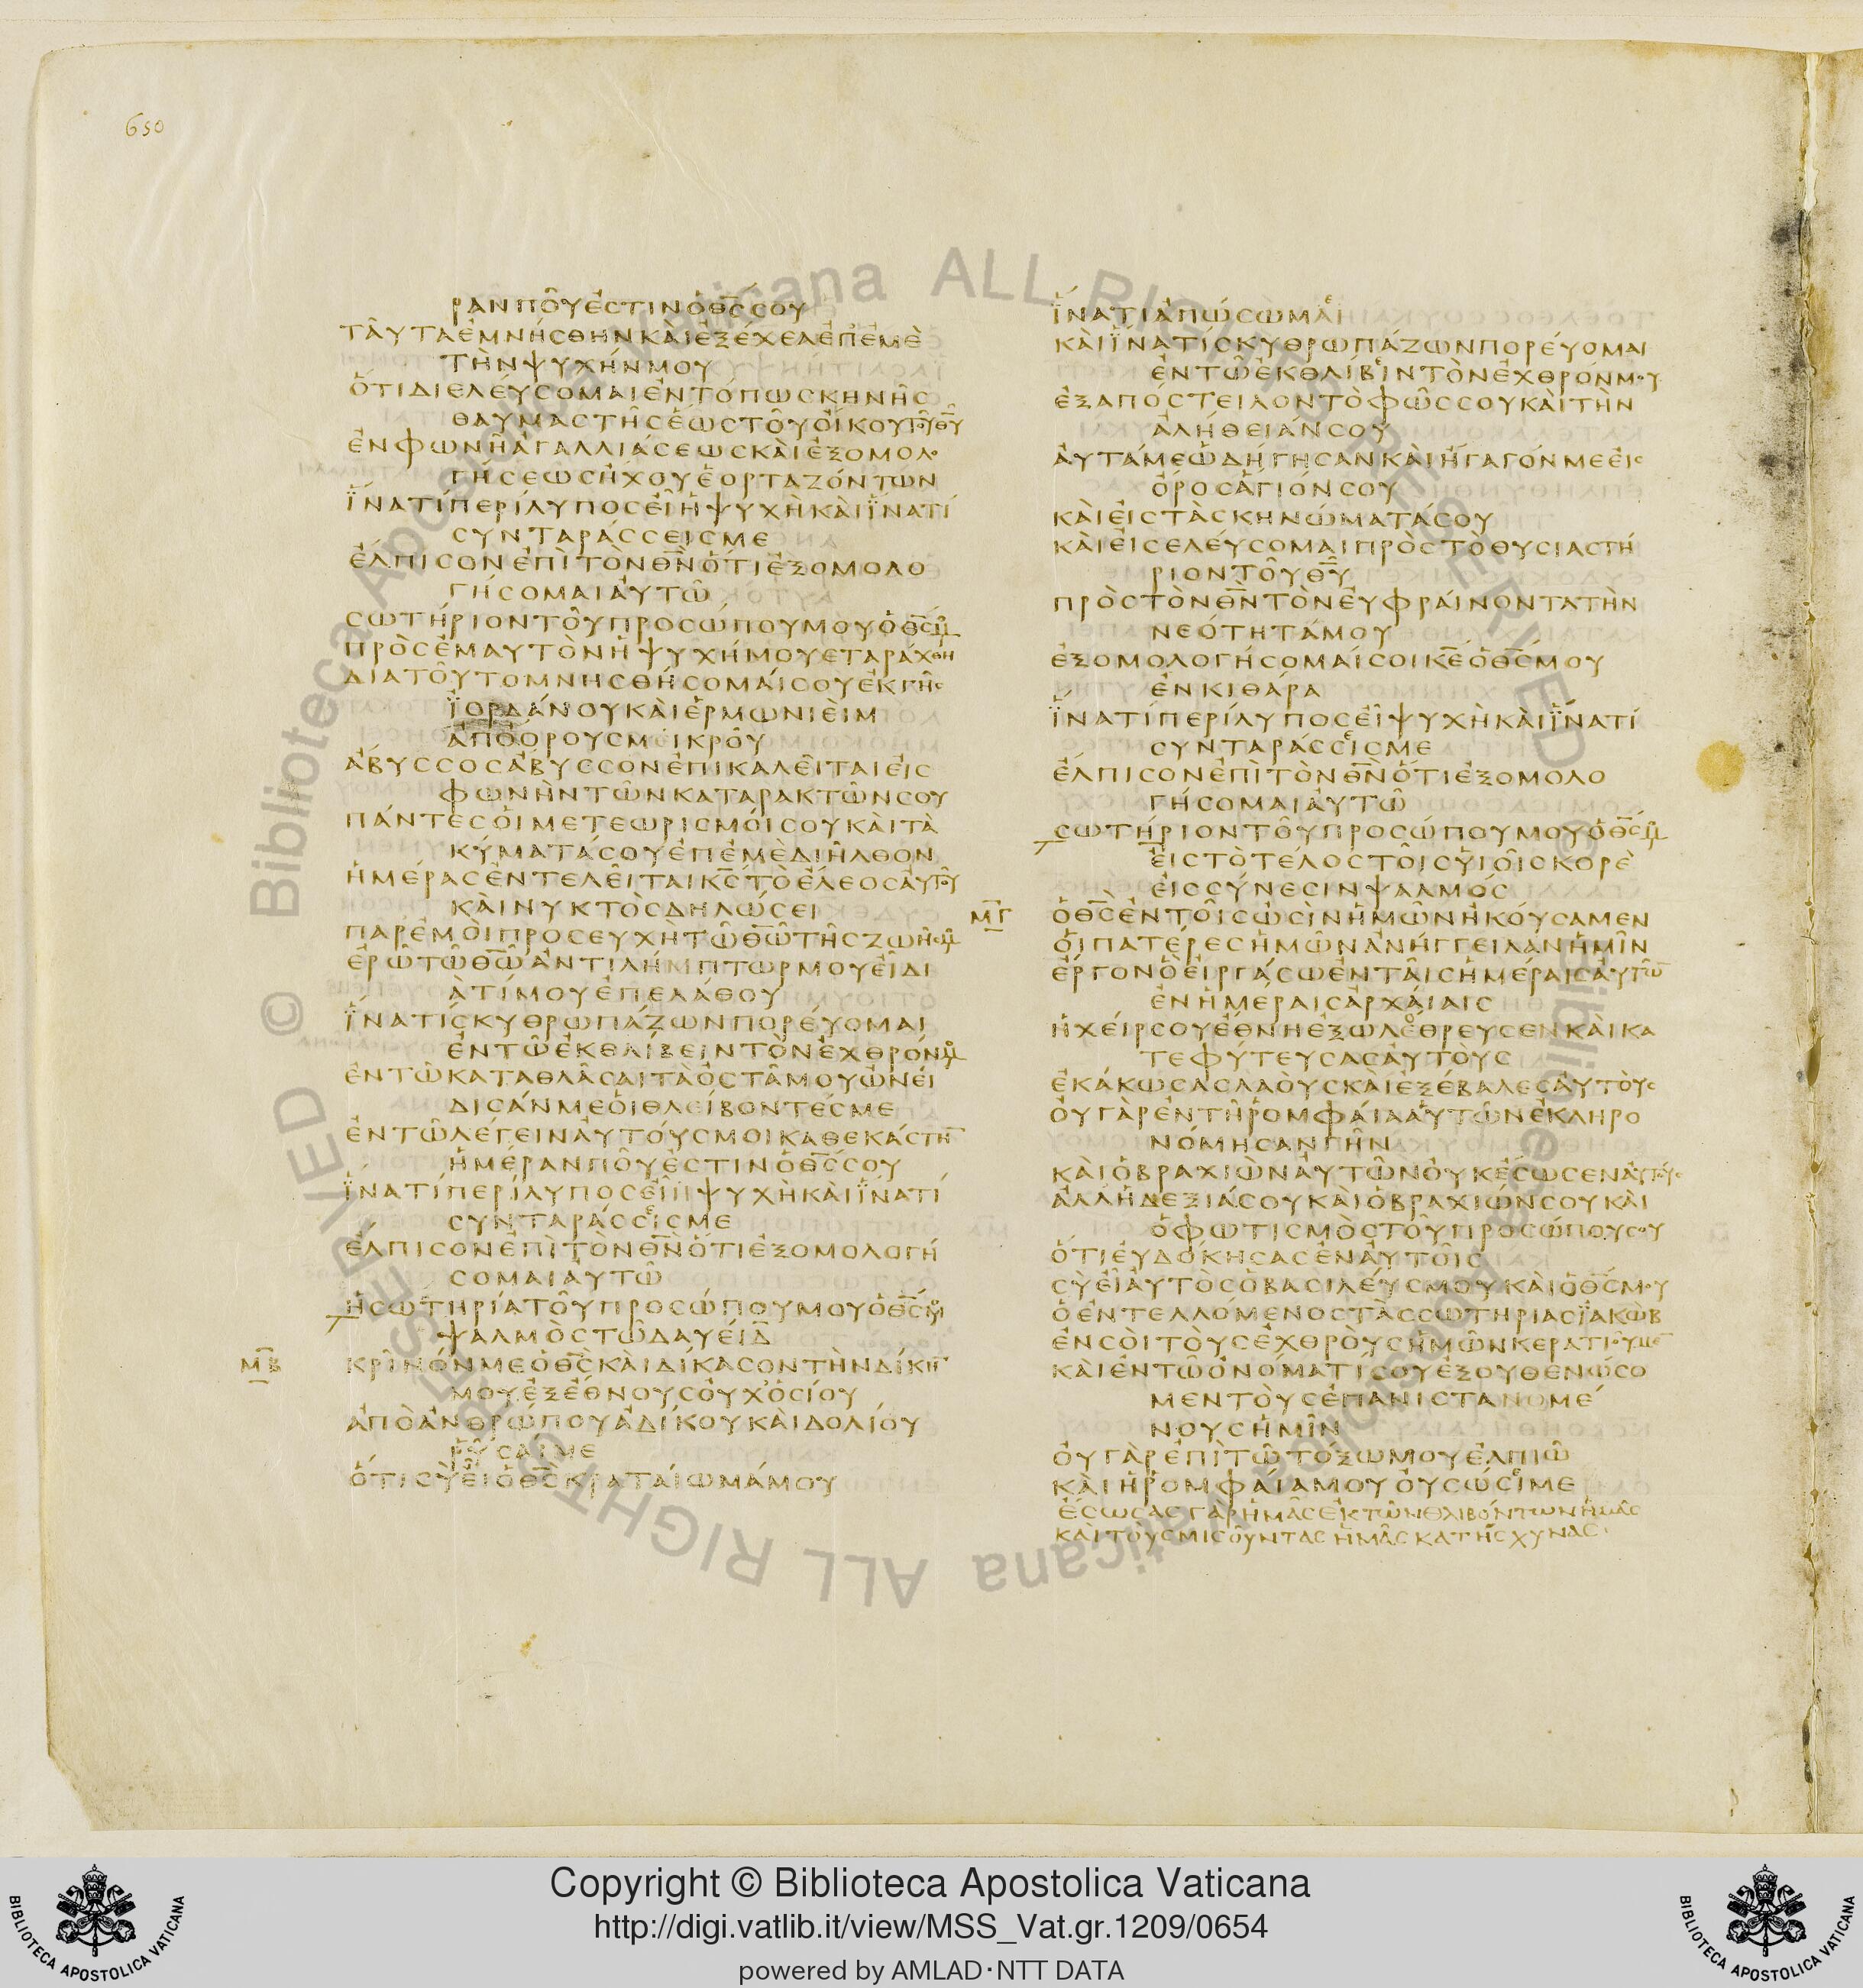 650
ΡΑΝΠΟΥΕϹΤΙΝΟΘ̅Ϲ̅ϹΟΥ
ΤΑΥΤΑΕΜΝΗϹΘΗΝΚΑΙΕΞΕΧΕΑΕΠΕΜΕ
ΤΗΝΨΥΧΗΝΜΟΥ
ΟΤΙΔΙΕΛΕΥϹΟΜΑΙΕΝΤΟΠΩϹΚΗΝΗϹ
ΘΑΥΜΑϹΤΗϹΕΩϹΤΟΥΟΙΚΟΥΤΟΥΘ̅Υ̅
ΕΝΦΩΝΗΑΓΑΛΛΙΑϹΕΩϹΚΑΙΕΞΟΜΟΛΟ
ΓΗϹΕΩϹΗΧΟΥΕΟΡΤΑΖΟΝΤΩΝ
ΙΝΑΤΙΠΕΡΙΛΥΠΟϹΕΙΗΨΥΧΗΚΑΙΙΝΑΤΙ
ϹΥΝΤΑΡΑϹϹΕΙϹΜΕ
ΕΛΠΙϹΟΝΕΠΙΤΟΝΘ̅Ν̅ΟΤΙΕΞΟΜΟΛΟ
ΓΗϹΟΜΑΙΑΥΤΩ
ϹΩΤΗΡΙΟΝΤΟΥΠΡΟϹΩΠΟΥΜΟΥΟΘ̅Ϲ̅ΜΟΥ
ΠΡΟϹΕΜΑΥΤΟΝΗΨΥΧΗΜΟΥΕΤΑΡΑΧΘΗ
ΔΙΑΤΟΥΤΟΜΝΗϹΘΗϹΟΜΑΙϹΟΥΕΚΓΗϹ
ΙΟΡΔΑΝΟΥΚΑΙΕΡΜΩΝΙΕΙΜ
ΑΠΟΟΡΟΥϹΜΙΚΡΟΥ
ΑΒΥϹϹΟϹΑΒΥϹϹΟΝΕΠΙΚΑΛΕΙΤΑΙΕΙϹ
ΦΩΝΗΝΤΩΝΚΑΤΑΡΑΚΤΩΝϹΟΥ
ΠΑΝΤΕϹΟΙΜΕΤΕΩΡΙϹΜΟΙϹΟΥΚΑΙΤΑ
ΚΥΜΑΤΑϹΟΥΕΠΕΜΕΔΙΗΛΘΟΝ
ΗΜΕΡΑϹΕΝΤΕΛΕΙΤΑΙΚ̅Ϲ̅ΤΟΕΛΕΟϹΑΥΤΟΥ
ΚΑΙΝΥΚΤΟϹΔΗΛΩϹΕΙ
ΠΑΡΕΜΟΙΠΡΟϹΕΥΧΗΤΩΘ̅Ω̅ΤΗϹΖΩΗϹΜΟΥ
ΕΡΩΤΩΘ̅Ω̅ΑΝΤΙΛΗΜΠΤΩΡΜΟΥΕΙΔΙ
ΑΤΙΜΟΥΕΠΕΛΑΘΟΥ
ΙΝΑΤΙϹΚΥΘΡΩΠΑΖΩΝΠΟΡΕΥΟΜΑΙ
ΕΝΤΩΕΚΘΛΙΒΕΙΝΤΟΝΕΧΘΡΟΝΜΟΥ
ΕΝΤΩΚΑΤΑΘΛΑϹΑΙΤΑΟϹΤΑΜΟΥΩΝΕΙ
ΔΙϹΑΝΜΕΟΙΘΛΕΙΒΟΝΤΕϹΜΕ
ΕΝΤΩΛΕΓΕΙΝΑΥΤΟΥϹΜΟΙΚΑΘΕΚΑϹΤΗ̅
ΗΜΕΡΑΝΠΟΥΕϹΤΙΝΟΘ̅Ϲ̅ϹΟΥ
ΙΝΑΤΙΠΕΡΙΛΥΠΟϹΕΙΗΨΥΧΗΚΑΙΙΝΑΤΙ
ϹΥΝΤΑΡΑϹϹΕΙϹΜΕ
ΕΛΠΙϹΟΝΕΠΙΤΟΝΘ̅Ν̅ΟΤΙΕΞΟΜΟΛΟΓΗ
ϹΟΜΑΙΑΥΤΩ
ΗϹΩΤΗΡΙΑΤΟΥΠΡΟϹΩΠΟΥΜΟΥΟΘ̅Ϲ̅ΜΟΥ
ΨΑΛΜΟϹΤΩΔΑΥΕΙΔ
Μ̅Β̅ ΚΡΙΝΟΝΜΕΟΘ̅Ϲ̅ΚΑΙΔΙΚΑϹΟΝΤΗΝΔΙΚΗ̅
ΜΟΥΕΞΕΘΝΟΥϹΟΥΧΟϹΙΟΥ
ΑΠΟΑΝΘΡΩΠΟΥΑΔΙΚΟΥΚΑΙΔΟΛΙΟΥ
ΡΥϹΑΙΜΕ
ΟΤΙϹΥΕΙΟΘ̅Ϲ̅ΚΡΑΤΑΙΩΜΑΜΟΥ
ΙΝΑΤΙΑΠΩϹΩΜΑΙ
ΚΑΙΙΝΑΤΙϹΚΥΘΡΩΠΑΖΩΝΠΟΡΕΥΟΜΑΙ
ΕΝΤΩΕΚΘΛΙΒΕΙΝΤΟΝΕΧΘΡΟΝΜΟΥ
ΕΞΑΠΟϹΤΕΙΛΟΝΤΟΦΩϹϹΟΥΚΑΙΤΗΝ
ΑΛΗΘΕΙΑΝϹΟΥ
ΑΥΤΑΜΕΩΔΗΓΗϹΑΝΚΑΙΗΓΑΓΟΝΜΕΕΙϹ
ΟΡΟϹΑΓΙΟΝϹΟΥ
ΚΑΙΕΙϹΤΑϹΚΗΝΩΜΑΤΑϹΟΥ
ΚΑΙΕΙϹΕΛΕΥϹΟΜΑΙΠΡΟϹΤΟΘΥϹΙΑϹΤΗ
ΡΙΟΝΤΟΥΘ̅Υ̅
ΠΡΟϹΤΟΝΘ̅Ν̅ΤΟΝΕΥΦΡΑΙΝΟΝΤΑΤΗΝ
ΝΕΟΤΗΤΑΜΟΥ
ΕΞΟΜΟΛΟΓΗϹΟΜΑΙϹΟΙΚ̅Ε̅ΟΘ̅Ϲ̅ΜΟΥ
ΕΝΚΙΘΑΡΑ
ΙΝΑΤΙΠΕΡΙΛΥΠΟϹΕΙΨΥΧΗΚΑΙΙΝΑΤΙ
ϹΥΝΤΑΡΑϹϹΕΙϹΜΕ
ΕΛΠΙϹΟΝΕΠΙΤΟΝΘ̅Ν̅ΟΤΙΕΞΟΜΟΛΟ
ΓΗϹΟΜΑΙΑΥΤΩ
ϹΩΤΗΡΙΟΝΤΟΥΠΡΟϹΩΠΟΥΜΟΥΟΘ̅Ϲ̅ΜΟΥ
ΕΙϹΤΟΤΕΛΟϹΤΟΙϹΥΙΟΙϹΚΟΡΕ
ΕΙϹϹΥΝΕϹΙΝΨΑΛΜΟϹ
Μ̅Γ̅ ΟΘ̅Ϲ̅ΕΝΤΟΙϹΩϹΙΝΗΜΩΝΗΚΟΥϹΑΜΕΝ
ΟΙΠΑΤΕΡΕϹΗΜΩΝΑΝΗΓΓΕΙΛΑΝΗΜΙΝ
ΕΡΓΟΝΟΕΙΡΓΑϹΩΕΝΤΑΙϹΗΜΕΡΑΙϹΑΥΤΩ̅
ΕΝΗΜΕΡΑΙϹΑΡΧΑΙΑΙϹ
ΗΧΕΙΡϹΟΥΕΘΝΗΕΞΩΛΕΘΡΕΥϹΕΝΚΑΙΚΑ
ΤΕΦΥΤΕΥϹΑϹΑΥΤΟΥϹ
ΕΚΑΚΩϹΑϹΛΑΟΥϹΚΑΙΕΞΕΒΑΛΕϹΑΥΤΟΥϹ
ΟΥΓΑΡΕΝΤΗΡΟΜΦΑΙΑΑΥΤΩΝΕΚΛΗΡΟ
ΝΟΜΗϹΑΝΓΗΝ
ΚΑΙΟΒΡΑΧΙΩΝΑΥΤΩΝΟΥΚΕϹΩϹΕΝΑΥΤΟΥϹ
ΑΛΛΗΔΕΞΙΑϹΟΥΚΑΙΟΒΡΑΧΙΩΝϹΟΥΚΑΙ
ΟΦΩΤΙϹΜΟϹΤΟΥΠΡΟϹΩΠΟΥϹΟΥ
ΟΤΙΕΥΔΟΚΗϹΑϹΕΝΑΥΤΟΙϹ
ϹΥΕΙΑΥΤΟϹΟΒΑϹΙΛΕΥϹΜΟΥΚΑΙΟΘ̅Ϲ̅ΜΟΥ
ΟΕΝΤΕΛΛΟΜΕΝΟϹΤΑϹϹΩΤΗΡΙΑϹΙΑΚΩΒ
ΕΝϹΟΙΤΟΥϹΕΧΘΡΟΥϹΗΜΩΝΚΕΡΑΤΙΟΥΜΕ̅
ΚΑΙΕΝΤΩΟΝΟΜΑΤΙϹΟΥΕΞΟΥΘΕΝΩϹΟ
ΜΕΝΤΟΥϹΕΠΑΝΙϹΤΑΝΟΜΕ
ΝΟΥϹΗΜΙΝ
ΟΥΓΑΡΕΠΙΤΩΤΟΞΩΜΟΥΕΛΠΙΩ
ΚΑΙΗΡΟΜΦΑΙΑΜΟΥΟΥϹΩϹΕΙΜΕ
ΕϹΩϹΑϹΓΑΡΗΜΑϹΕΚΤΩΝΘΛΙΒΟΝΤΩΝΗΜΑϹ
ΚΑΙΤΟΥϹΜΙϹΟΥΝΤΑϹΗΜΑϹΚΑΤΗϹΧΥΝΑϹ
© Biblioteca Apostolica Vaticana ALL RIGHTS RESERVED
© Biblioteca Apostolica Vaticana ALL RIGHTS RESERVED
Copyright © Biblioteca Apostolica Vaticana
http://digi.vatlib.it/view/MSS_Vat.gr.1209/0654
powered by AMLAD·NTT DATA
BIBLIOTECA APOSTOLICA VATICANA
BIBLIOTECA APOSTOLICA VATICANA